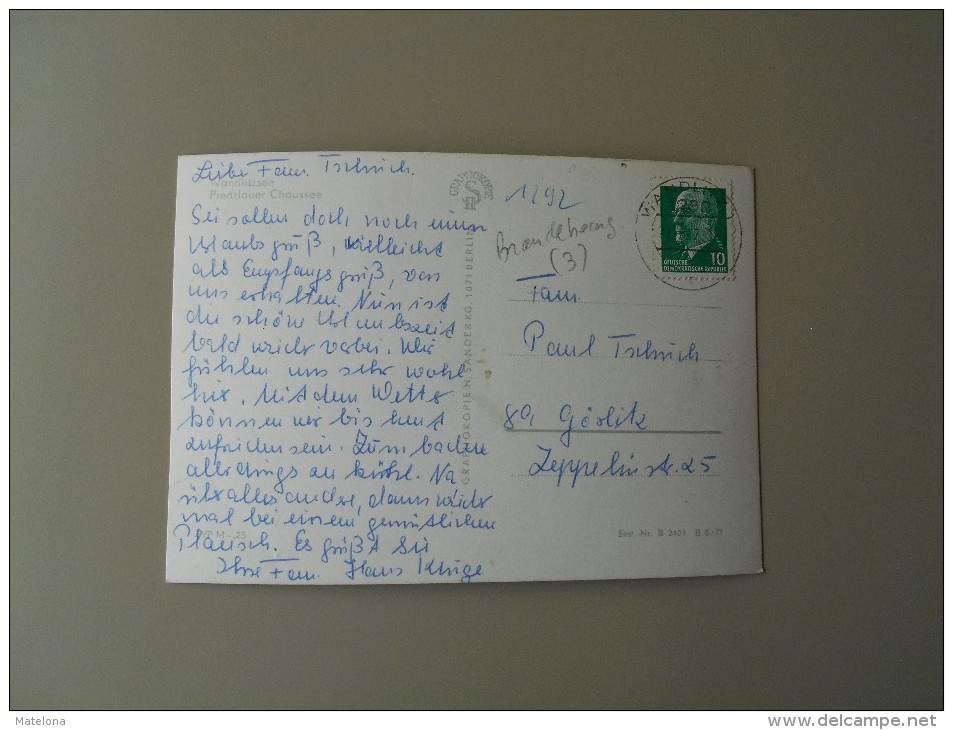 Liebe Fam. Tschirch.
Wandlitzsee
Prenzlauer Chaussee
Sie sollen doch noch einen
Urlaubsgruß, vielleicht
als Empfangsgruß, von
uns erhalten. Nun ist
die schöne Urlaubszeit
bald wieder vorbei. Wir
fühlen uns sehr wohl
hier. Mit dem Wetter
können wir bis heut
zufrieden sein. Zum baden
allerdings zu kühl. Na
über alles andere, dann wieder
mal bei einem gemütlichen
Plausch. Es grüßt Sie
Ihre Fam. Hans Kluge
M -,25
GRAPHOKOPIE
GRAPHOKOPIE H. SANDER KG, 1071 BERLIN
1292
Brandebourg
(3)
WANDLI
10
DEUTSCHE
DEMOKRATISCHE REPUBLIK
Fam
Paul Tschirch
89 Görlitz
Zeppelinstr. 25
Best.-Nr. B 2601 B 6/71
Matelona
www.delcampe.net